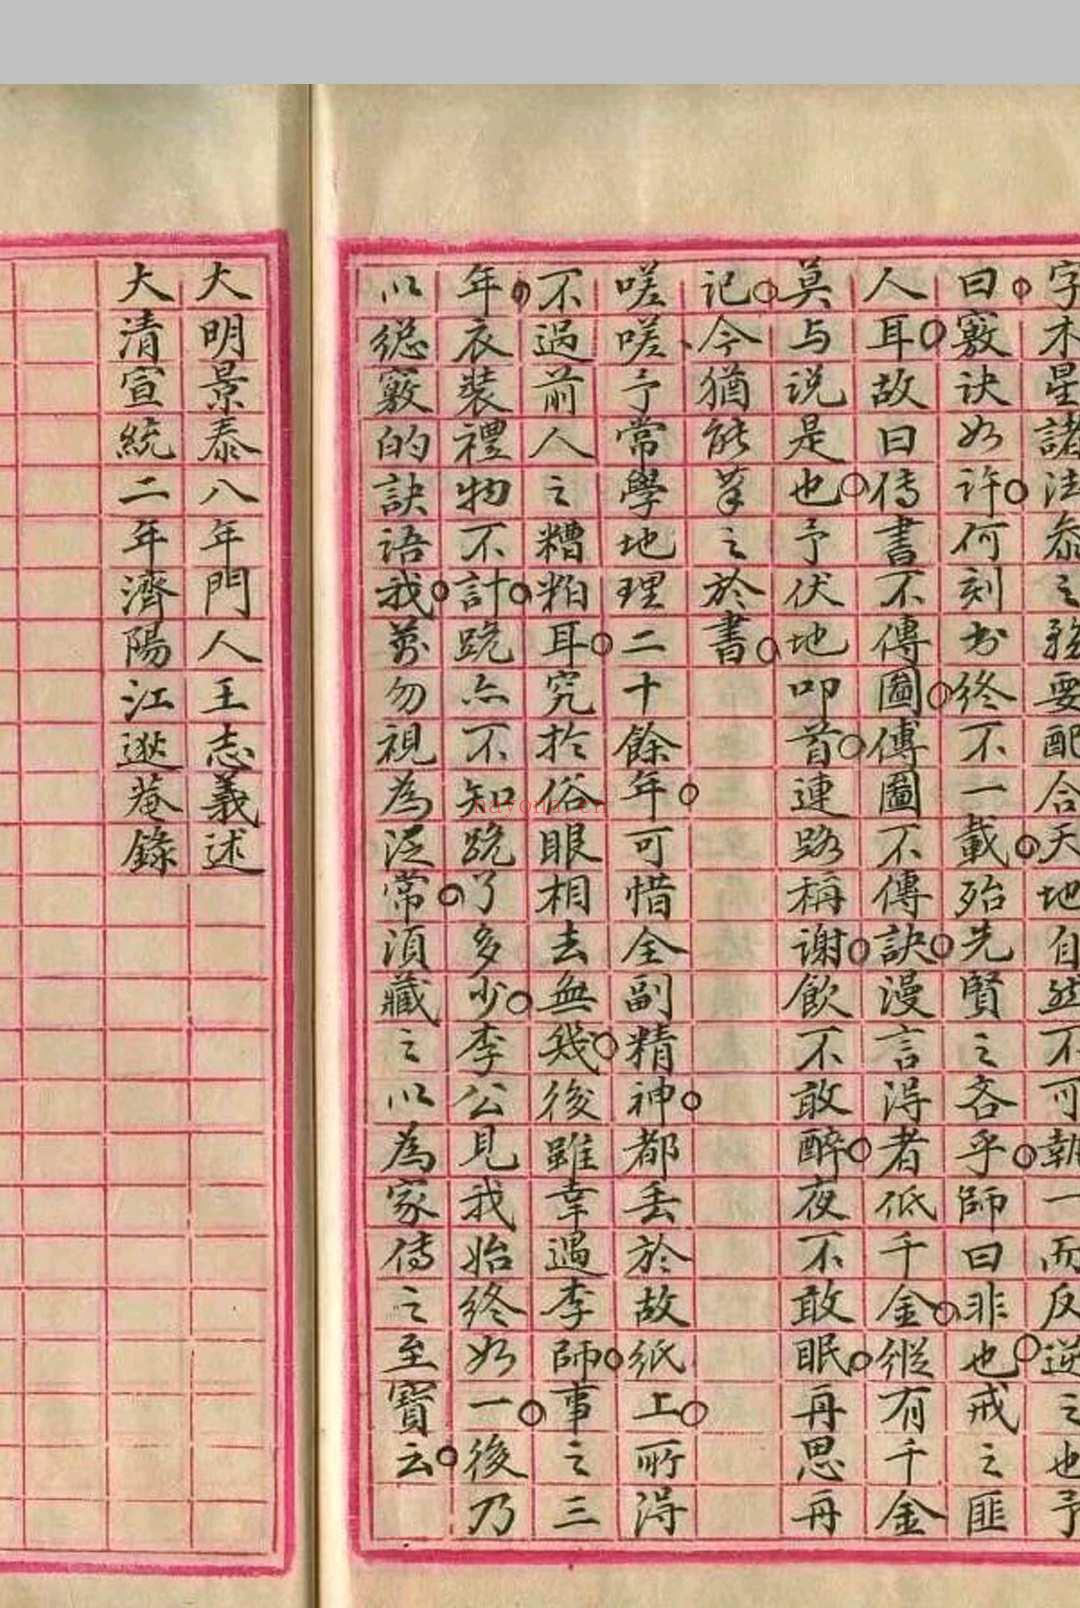 字木星諸法泰之務要配合天地自然不可執一而反逆之也予
曰竅訣如許何刻書終不一載殆先賢之吝乎師曰非也戒之匪
人耳故曰傳書不傳圖傳圖不傳訣漫言得者低千金縱有千金
莫与说是也予伏地叩首連路稱谢飲不敢醉夜不敢眠再思再
记今猶能筆之於書
嗟嗟予常學地理二十餘年可惜全副精神都丢於故纸上所得
不過前人之糟粕耳究於俗眼相去無幾後雖幸遇李師事之三
年衣裝禮物不計跪亦不知跪了多少李公見我始終如一後乃
以総竅的訣語我為勿視為泛常須藏之以為家傳之至寶云
大明景泰八年門人王志義述
大清宣統二年濟陽江逖菴錄
nayona.cn